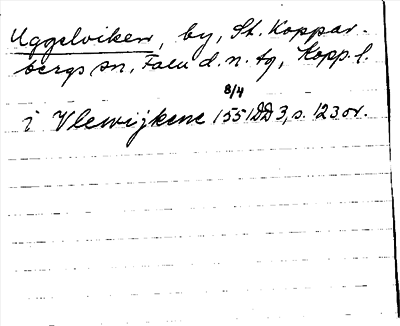 Uggelviken, by, St. Koppar-
bergs sn, Falu d. n. tg, Kopp. l.
8/4
i Vlewijkene 1551 DD 3, s. 123 or.